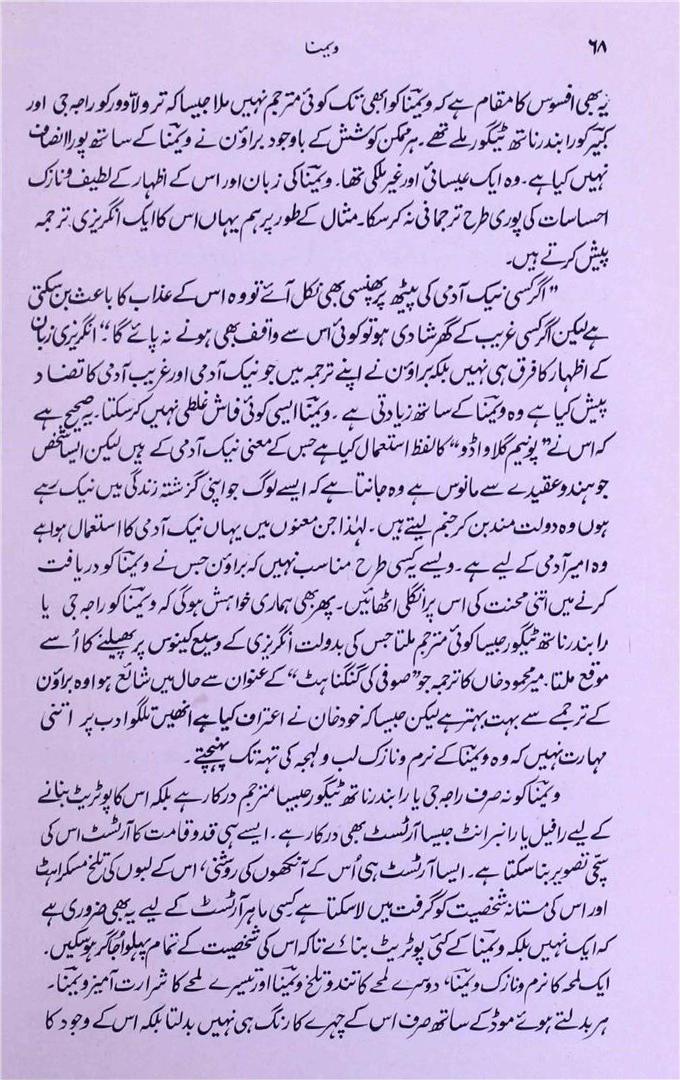 ۶۸
ویمنا
یہ بھی افسوس کا مقام ہے کہ ویمنا کو ابھی تک کوئی مترجم نہیں ملا جیسا کہ ترولاّوور کو راجہ جی اور
کبیر کو رابندر ناتھ ٹیگور ملے تھے۔ ہر ممکن کوشش کے باوجود براؤن نے ویمنا کے ساتھ پورا انصاف
نہیں کیا ہے۔ وہ ایک عیسائی اور غیر ملکی تھا۔ ویمنا کی زبان اور اس کے اظہار کے لطیف و نازک
احساسات کی پوری طرح ترجمانی نہ کر سکا۔ مثال کے طور پر ہم یہاں اس کا ایک انگریزی ترجمہ
پیش کرتے ہیں۔
”اگر کسی نیک آدمی کی پیٹھ پر پھنسی بھی نکل آئے تو وہ اس کے عذاب کا باعث بن سکتی
ہے لیکن اگر کسی غریب کے گھر شادی ہو تو کوئی اس سے واقف بھی ہونے نہ پائے گا“۔ انگریزی زبان
کے اظہار کا فرق ہی نہیں بلکہ براؤن نے اپنے ترجمہ میں جو نیک آدمی اور غریب آدمی کا تضاد
پیش کیا ہے وہ ویمنا کے ساتھ زیادتی ہے۔ ویمنا ایسی کوئی فاش غلطی نہیں کر سکتا۔ یہ صحیح ہے
کہ اس نے ”پونیم گلاواڈو“ کا لفظ استعمال کیا ہے جس کے معنی نیک آدمی کے ہیں لیکن ایسا شخص
جو ہندو عقیدے سے مانوس ہے وہ جانتا ہے کہ ایسے لوگ جو اپنی گزشتہ زندگی میں نیک رہے
ہوں وہ دولت مند بن کر جنم لیتے ہیں۔ لہٰذا جن معنوں میں یہاں نیک آدمی کا استعمال ہوا ہے
وہ امیر آدمی کے لیے ہے۔ ویسے یہ کسی طرح مناسب نہیں کہ براؤن جس نے ویمنا کو دریافت
کرنے میں اتنی محنت کی اس پر انگلی اٹھائیں۔ پھر بھی ہماری خواہش ہوگی کہ ویمنا کو راجہ جی یا
رابندر ناتھ ٹیگور جیسا کوئی مترجم ملتا جس کی بدولت انگریزی کے وسیع کینوس پر پھیلنے کا اُسے
موقع ملتا۔ میر محمود خاں کا ترجمہ جو ”صوفی کی گنگناہٹ“ کے عنوان سے حال میں شائع ہوا وہ براؤن
کے ترجمے سے بہت بہتر ہے لیکن جیسا کہ خود خان نے اعتراف کیا ہے انھیں تلگو ادب پر اتنی
مہارت نہیں کہ وہ ویمنا کے نرم و نازک لب و لہجہ کی تہہ تک پہنچتے۔
ویمنا کو نہ صرف راجہ جی یا رابندر ناتھ ٹیگور جیسا مترجم درکار ہے بلکہ اس کا پوٹریٹ بنانے
کے لیے رافیل یا رانبرانٹ جیسا آرٹسٹ بھی درکار ہے۔ ایسے ہی قد و قامت کا آرٹسٹ اس کی
سچّی تصویر بنا سکتا ہے۔ ایسا آرٹسٹ ہی اُس کے آنکھوں کی روشنی، اس کے لبوں کی تلخ مسکراہٹ
اور اس کی مستانہ شخصیت کو گرفت میں لا سکتا ہے کسی ماہر آرٹسٹ کے لیے یہ بھی ضروری ہے
کہ ایک نہیں بلکہ ویمنا کے کئی پوٹریٹ بنائے تاکہ اس کی شخصیت کے تمام پہلو اُجاگر ہو سکیں۔
ایک لمحہ کا نرم و نازک ویمنا، دوسرے لمحے کا تند و تلخ ویمنا اور تیسرے لمحے کا شرارت آمیز ویمنا۔
ہر بدلتے ہوئے موڈ کے ساتھ صرف اس کے چہرے کا رنگ ہی نہیں بدلتا بلکہ اس کے وجود کا